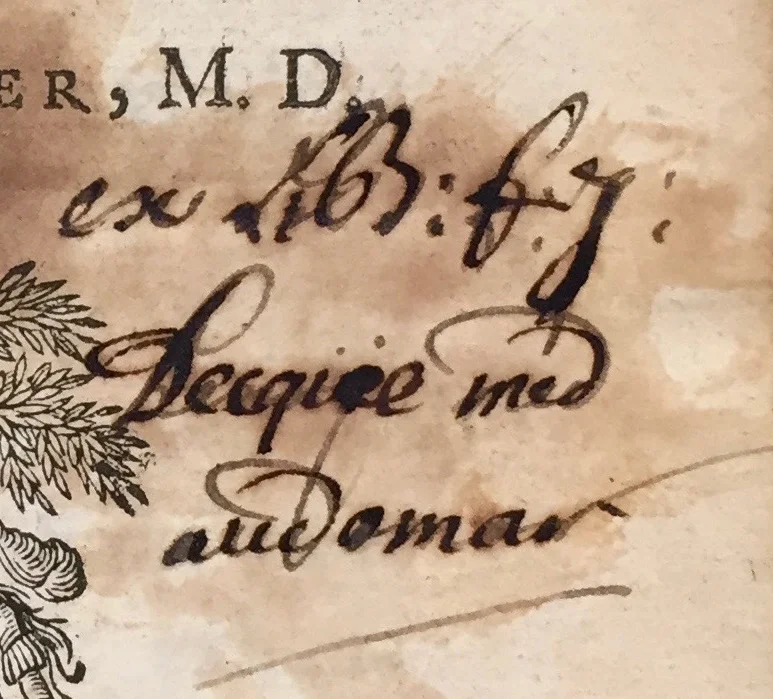 ER, M. D.
ex Lib: f. J:
Decqire med
audomar